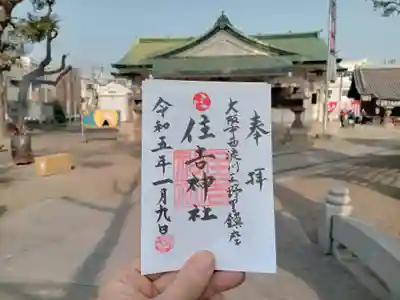 奉拝
大阪市西淀川区野里鎮座
住吉神社
令和五年一月九日